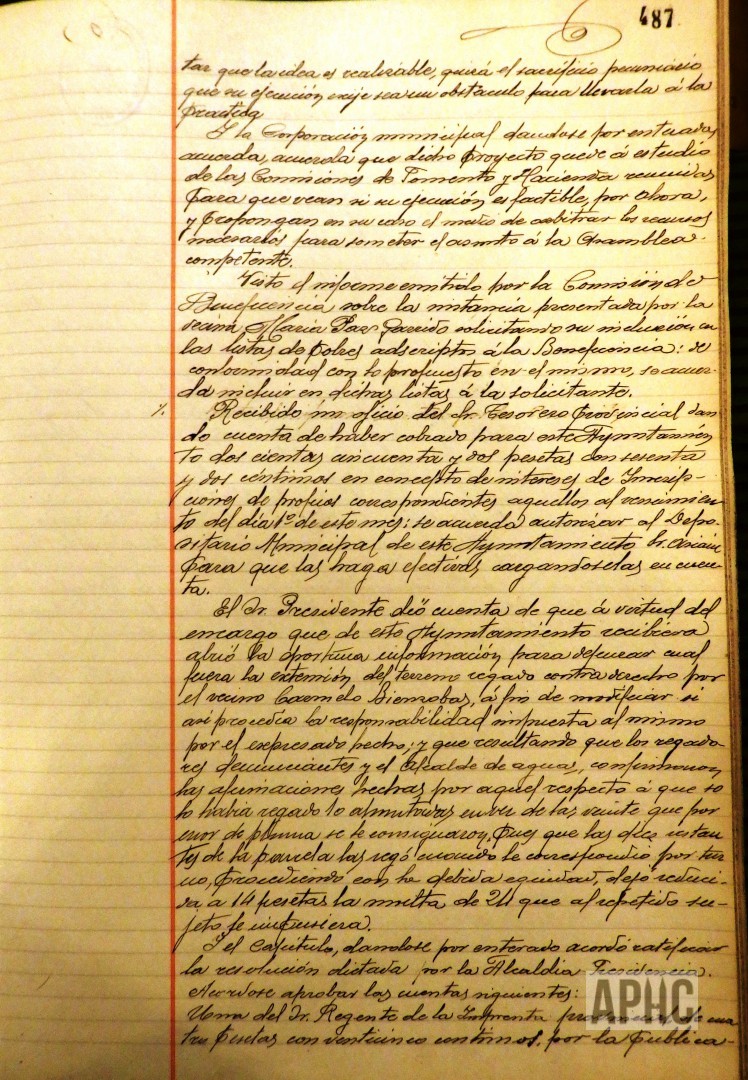 487
tar que la idea es realizable, quizá el sacrificio pecuniario
que su ejecución exije sea un obstáculo para llevarla á la
práctica
Y la Corporación municipal dandose por enterada,
acuerda, acuerda que dicho Proyecto quede á estudio
de las Comisiones de Fomento y Hacienda reunidas
para que vean si su ejecución es factible, por ahora,
y propongan en su caso el medio de arbitrar los recursos
necesarios para someter el asunto á la Asamblea
competente.
Visto el informe emitido por la Comisión de
Beneficencia sobre la instancia presentada por la
vecina Maria Paz Garrido solicitando su inclusión en
las listas de pobres adscriptos á la Beneficencia: de
conformidad con lo propuesto en el mismo, se acuer-
da incluir en dichas listas á la solicitante.
Recibido un oficio del Sr. Tesorero Provincial dan-
do cuenta de haber cobrado para este Ayuntamien-
to dos cientas cincuenta y dos pesetas con sesenta
y dos céntimos en concepto de intereses de Inscrip-
ciones de propios correspondientes aquellos al vencimien-
to del dia 1º de este mes: se acuerda autorizar al Depo-
sitario Municipal de este Ayuntamiento Sr.
para que las haga efectivas cargandoselas en cuen-
ta.
El Sr. Presidente dió cuenta de que á virtud del
encargo que de este Ayuntamiento recibiera
abrió la oportuna información para depurar cual
fuera la extensión del terreno regado contra derecho por
el vecino Carmelo Bienzobas, á fin de modificar si
asi procedia la responsabilidad impuesta al mismo
por el expresado hecho; y que resultando que los regado-
res denunciantes y el Alcalde de aguas, confirmaron
las afirmaciones hechas por aquel respecto á que so
lo habia regado 10 almutadas en vez de las veinte que por
error de pluma se le consignaron, pues que las diez restan-
tes de la parcela las regó cuando le correspondio por tur
no, procediendo con la debida equidad, dejó reduci-
da a 14 pesetas la multa de 24 que al repetido su-
jeto se impusiera.
Y el Capitulo, dandose por enterado acordó ratificar
la resolución dictada por la Alcaldia Presidencia.
Acordose aprobar las cuentas siguientes:
Una del Sr. Regente de la Imprenta provincial de cua
tro pesetas con venticinco centimos, por la publica-
APHC